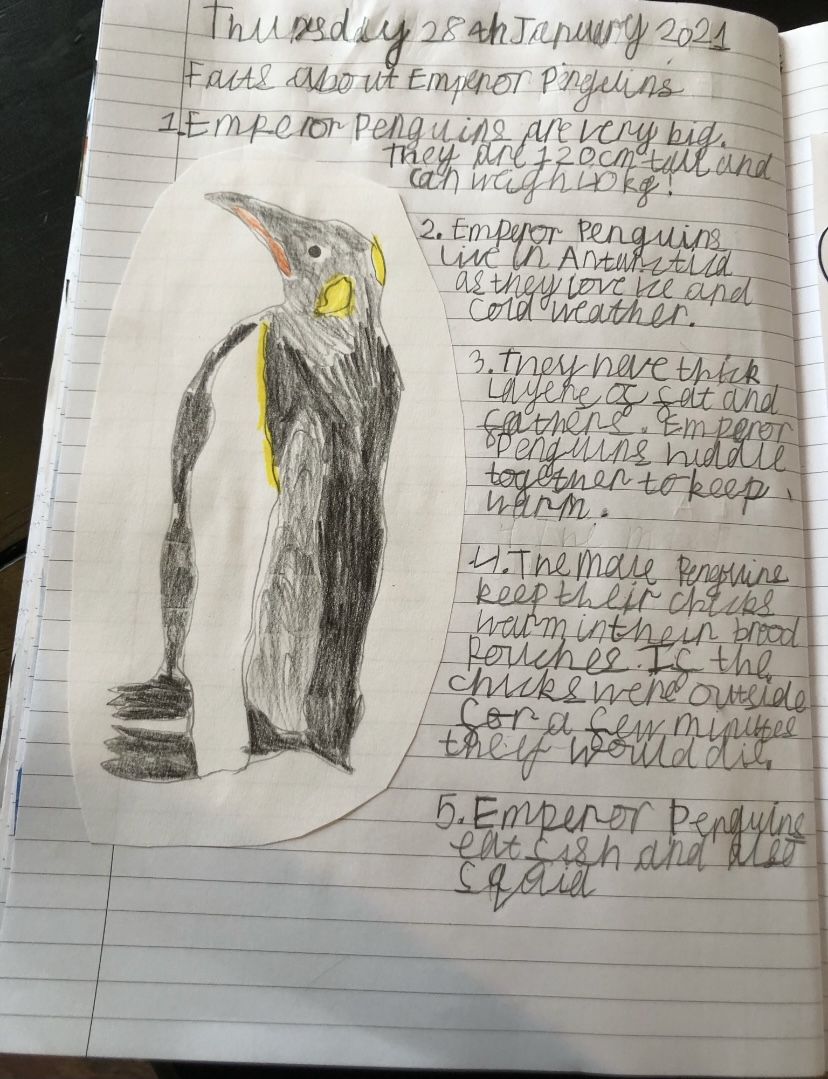 Thursday 28th January 2021
Facts about Emperor Pinguins
1. Emperor Penguins are very big.
They are 120cm tall and
can weigh 40kg!
2. Emperor Penguins
Live in Antarctica
as they love ice and
cold weather.
3. They have thick
Layers of fat and
feathers. Emperor
Penguins huddle
together to keep
warm.
4. The male Penguins
keep their chicks
warm in their brood
Pouches. If the
chicks were outside
for a few minutes
they would die.
5. Emperor Penguins
eat fish and also
squid